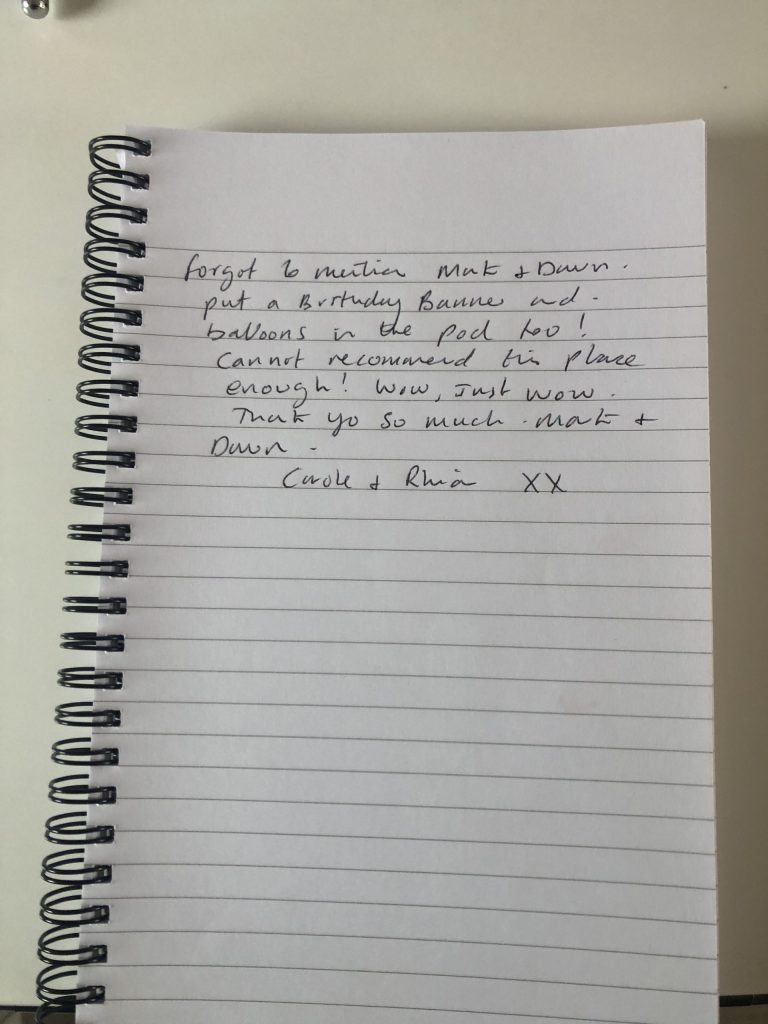 forgot to mention Mark & Dawn.
put a Birthday Banner and -
balloons in the pod too!
Cannot recommend this place
enough! Wow, Just wow.
Thank yo so much. Mark &
Dawn -
Carole & Rhia XX